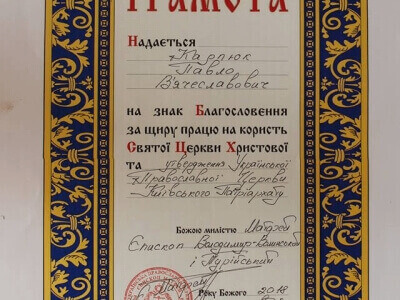 ГРАМОТА
Надається
Карпюк
Павло
В'ячеславович
на знак Благословення
за щиру працю на користь
Святої Церкви Христової
та утвердження Української
Православної Церкви
Київського Патріархату.
Божою милістю
Єпископ Володимир-Волинський
і Турійський
Року Божого 2018